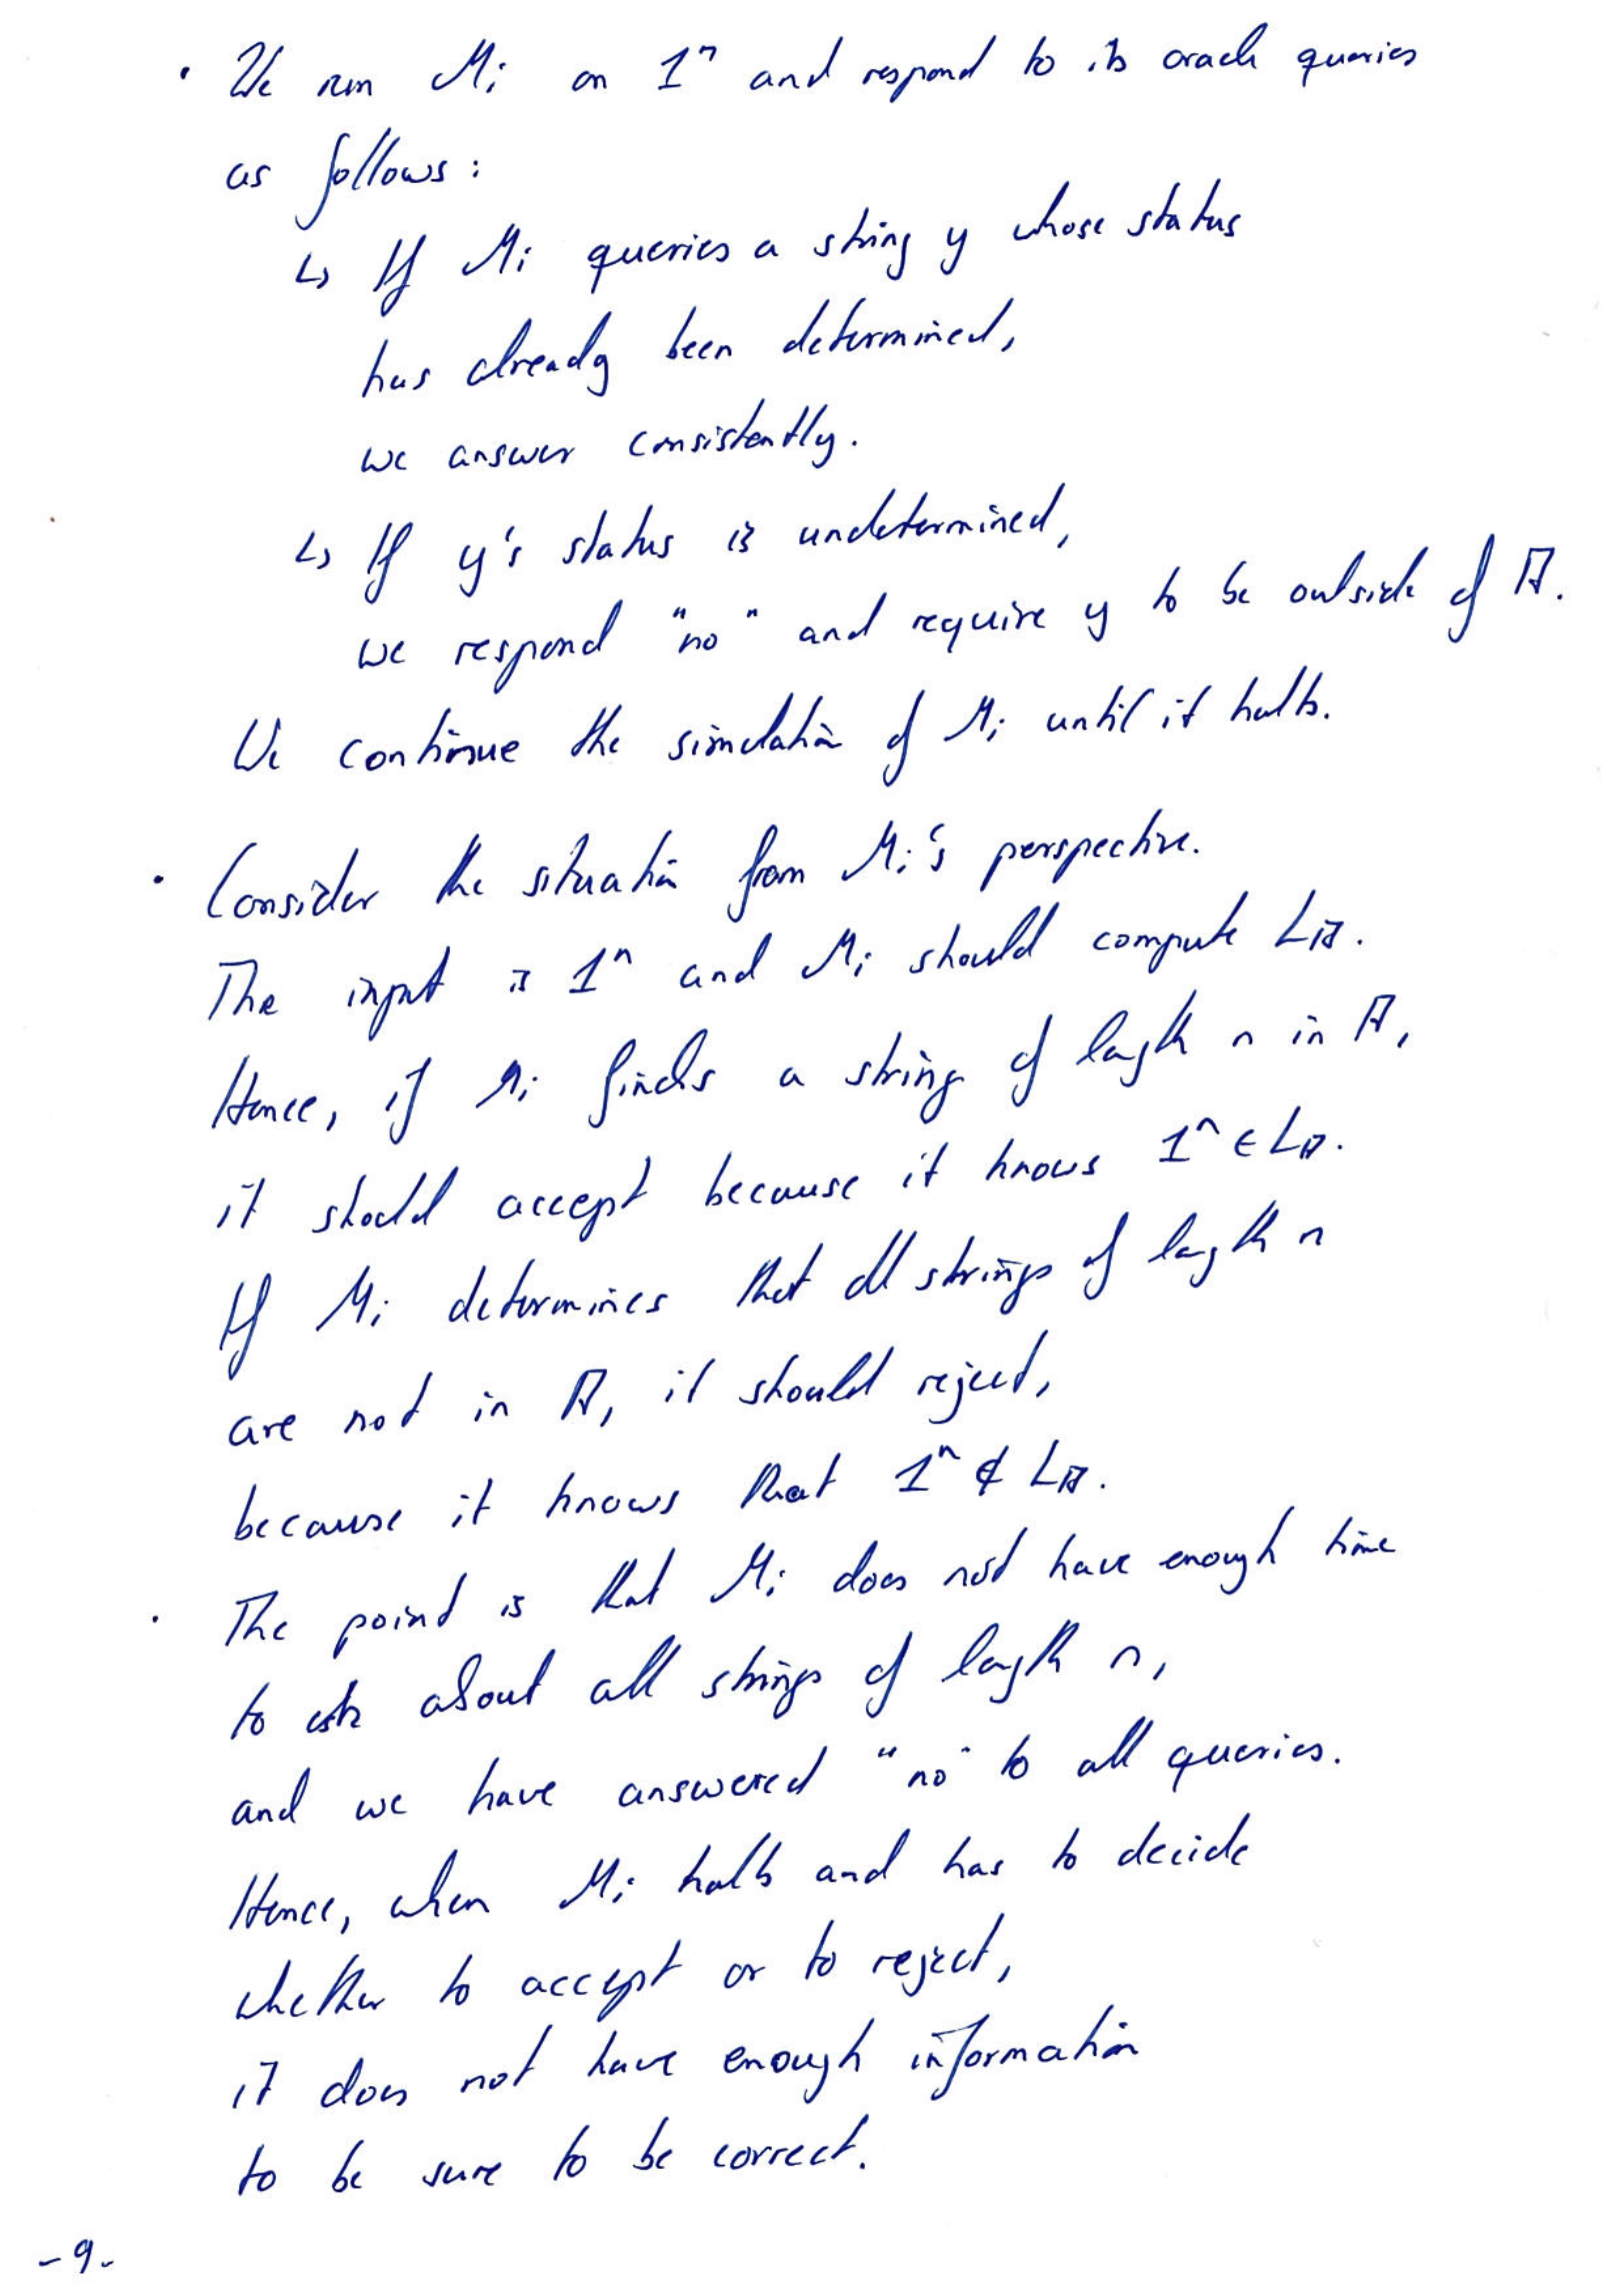 • We run Mi on 1^n and respond to its oracle queries
as follows :
↳ If Mi queries a string y whose status
has already been determined,
we answer consistently.
↳ If y's status is undetermined,
we respond "no" and require y to be outside of A.
We continue the simulation of Mi until it halts.
• Consider the situation from Mi's perspective.
The input is 1^n and Mi should compute L_A.
Hence, if Mi finds a string of length n in A,
it should accept because it knows 1^n ∈ L_A.
If Mi determines that all strings of length n
are not in A, it should reject,
because it knows that 1^n ∉ L_A.
• The point is that Mi does not have enough time
to ask about all strings of length n,
and we have answered "no" to all queries.
Hence, when Mi halts and has to decide
whether to accept or to reject,
it does not have enough information
to be sure to be correct.
- 9 -